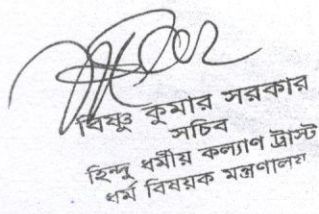 বিষ্ণু কুমার সরকার
সচিব
হিন্দু ধর্মীয় কল্যাণ ট্রাস্ট
ধর্ম বিষয়ক মন্ত্রণালয়